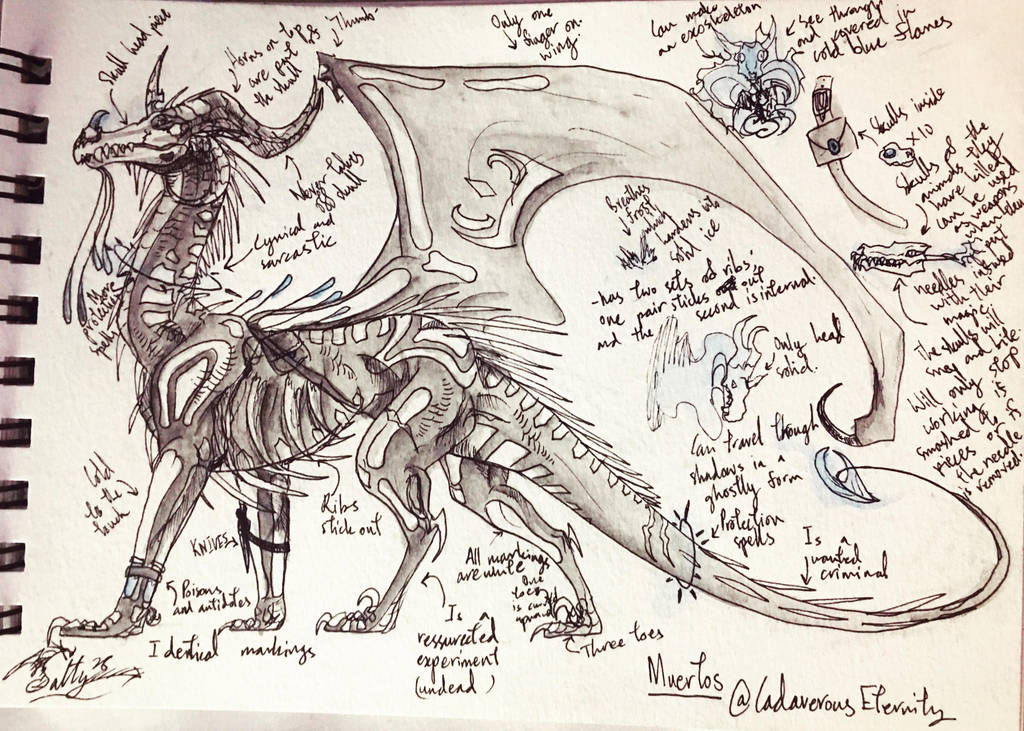 Skull head piece
Horns on top
are part
the skull
"Thumb"
Only one
finger on
wing.
Can make
an exoskeleton
See through
and covered in
cold blue flames
Skulls inside
X10
Skulls of
animals they
have killed
can be used
as weapons
when
needles infused
with their
magic.
The skulls will
snap and bite.
Will only stop
working if
smashed to
pieces or if
the needle
is removed.
Never takes
off skull
Cynical and
sarcastic
Breathes
frost
which hardens into
solid ice
-has two sets of ribs,
one pair sticks out
and the second is internal.
Only head
solid.
Can travel though
shadows in a
ghostly form
Protection
spells
More
protection
spells
Cold
to the
touch
KNIVES
Ribs
stick out
Poisons
and antidotes
Identical markings
All markings
are white
Is a
ressurected
experiment
(undead)
One
toe
is
Three toes
Is a
wanted
criminal
Muertos
@CadaverousEternity